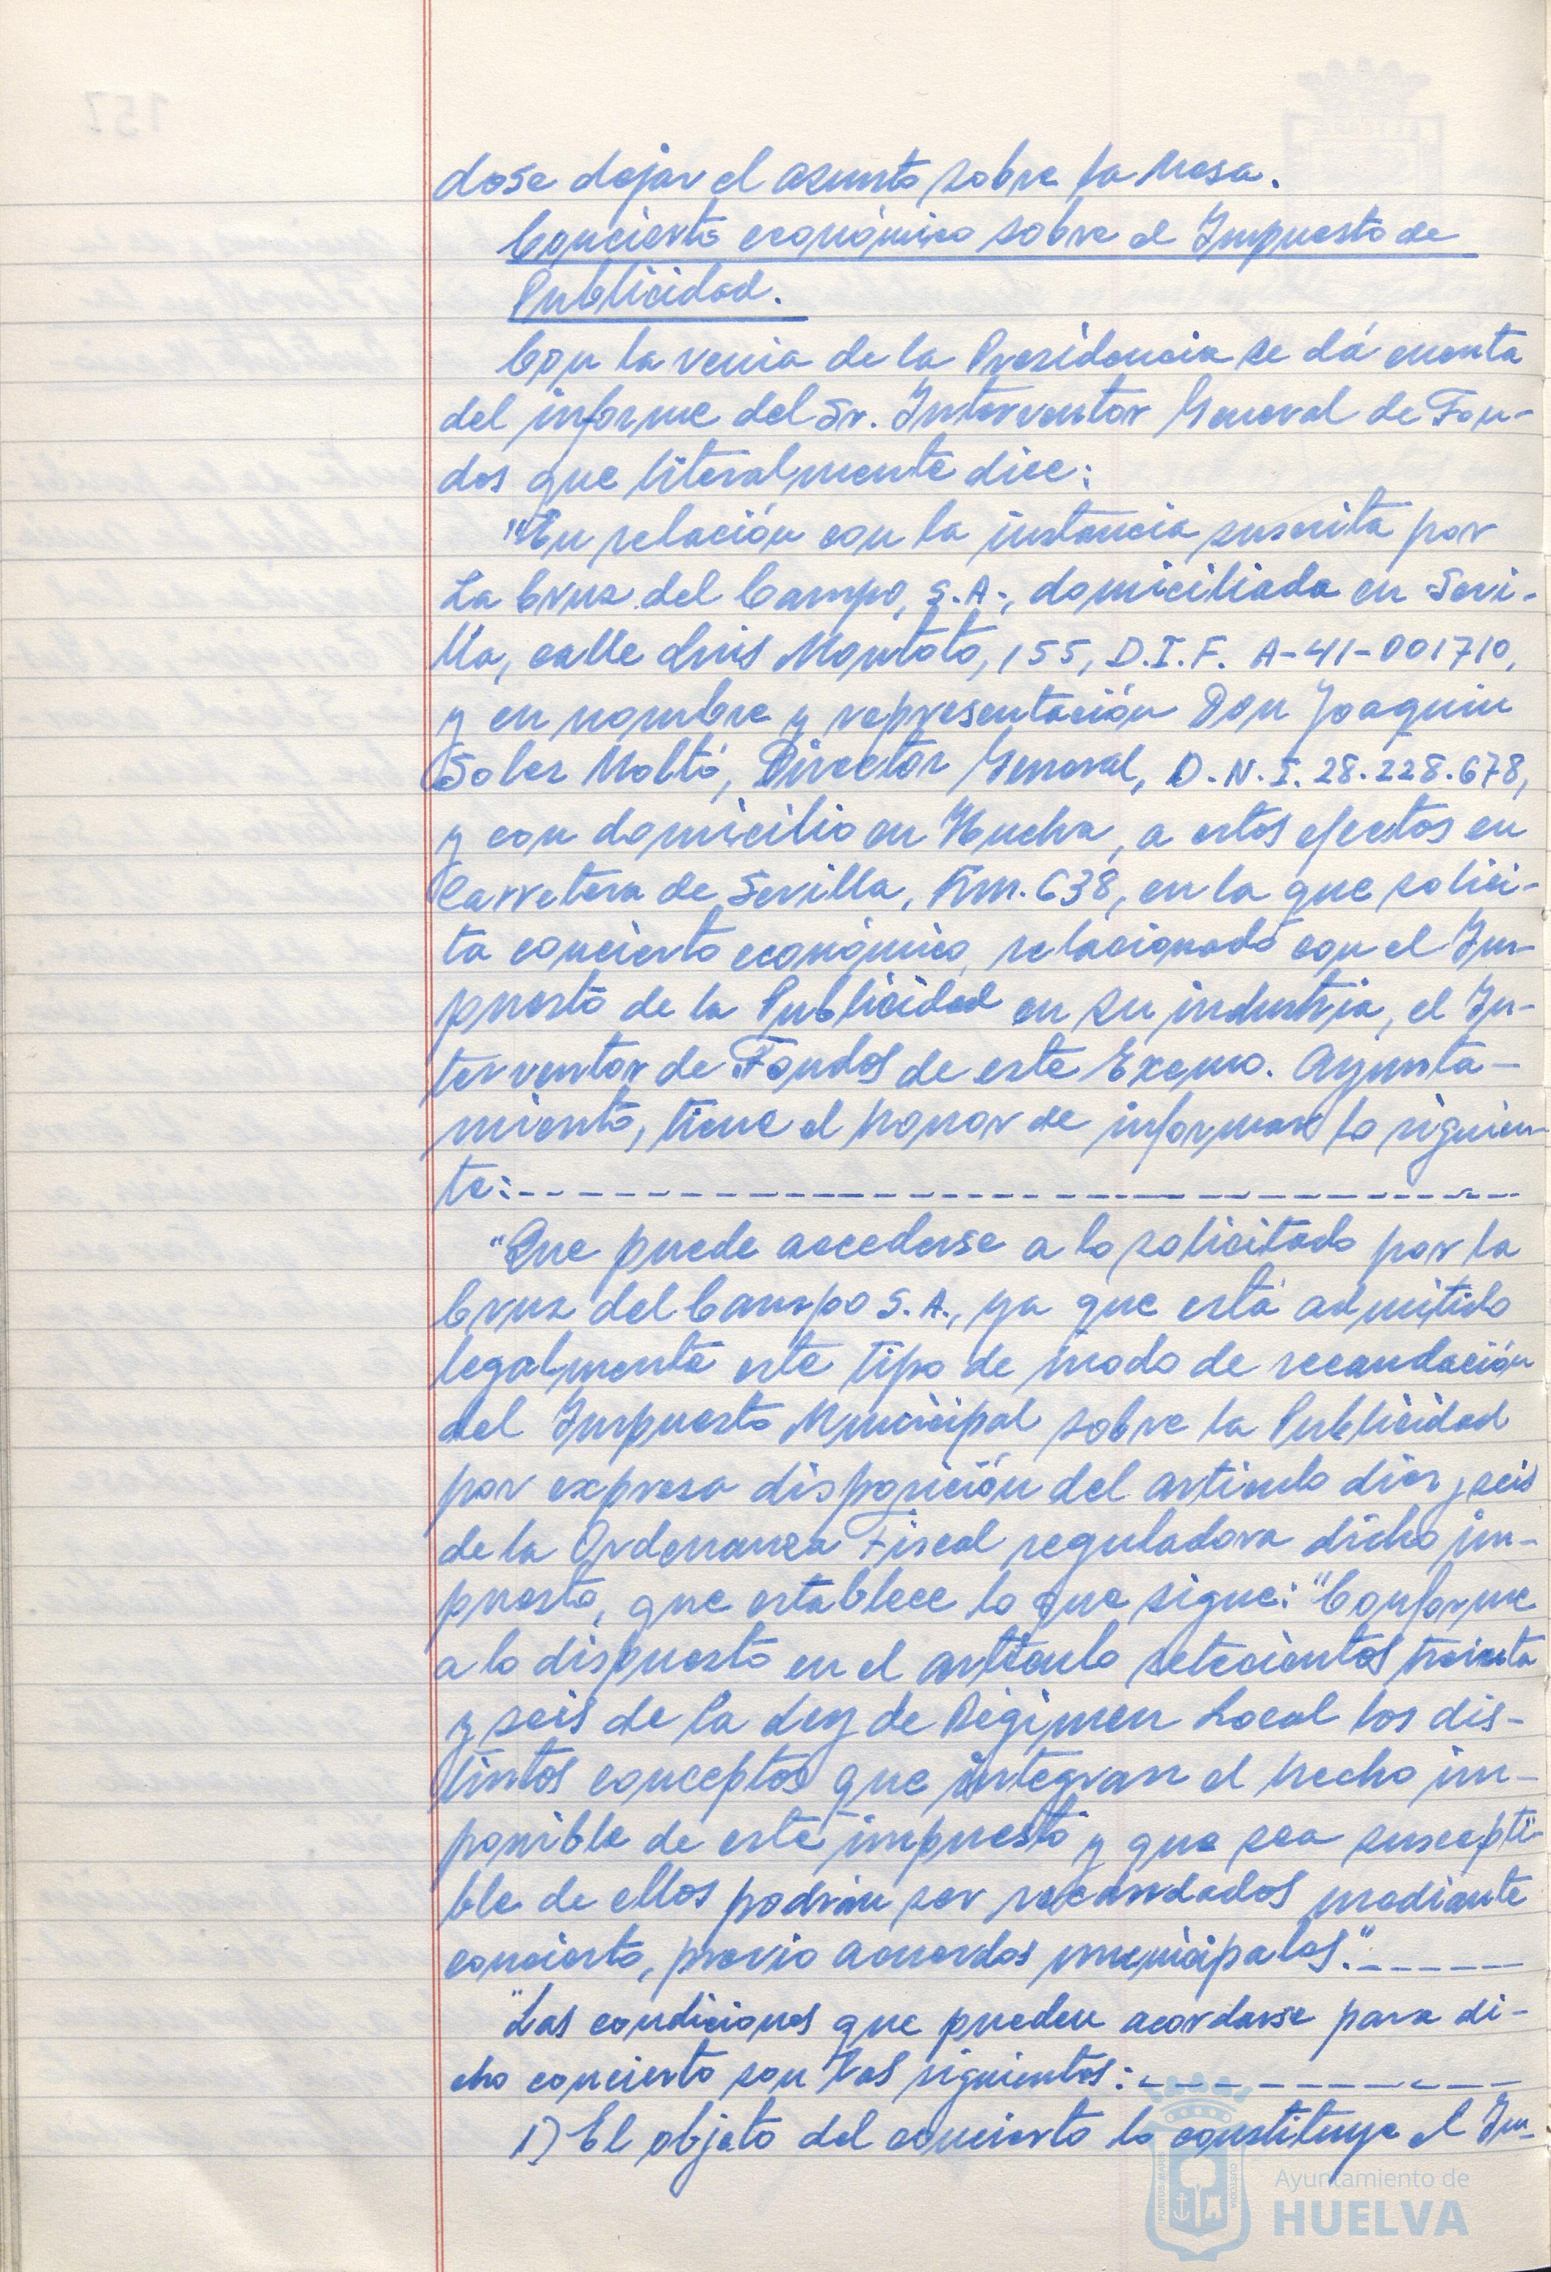 dose dejar el asunto sobre la Mesa.
Concierto económico sobre el Impuesto de
Publicidad.
Con la venia de la Presidencia se dá cuenta
del informe del Sr. Interventor General de Fon-
dos que literalmente dice:
"En relación con la instancia suscrita por
La Cruz del Campo, S.A., domiciliada en Sevi-
lla, calle Luis Montoto, 155, D.I.F. A-41-001710,
y en nombre y representación Don Joaquin
Soler Moltó, Director General, D.N.I. 28.228.678,
y con domicilio en Huelva, a estos efectos en
Carretera de Sevilla, Km. 638, en la que solici-
ta concierto económico, relacionado con el Im-
puesto de la Publicidad en su industria, el In-
terventor de Fondos de este Excmo. Ayunta-
miento, tiene el honor de informar lo siguien-
te:
"Que puede accederse a lo solicitado por la
Cruz del Campo S.A., ya que está admitido
legalmente este tipo de modo de recaudación
del Impuesto Municipal sobre la Publicidad
por expresa disposición del articulo diez y seis
de la Ordenanza Fiscal reguladora dicho im-
puesto, que establece lo que sigue: "Conforme
a lo dispuesto en el articulo setecientos treinta
y seis de la Ley de Régimen Local los dis-
tintos conceptos que integran el hecho im-
ponible de este impuesto y que sea suscepti-
ble de ellos podrán ser recaudados mediante
concierto, previo acuerdos municipales."
"Las condiciones que pueden acordarse para di-
cho concierto son las siguientes:
1) El objeto del concierto lo constituye el Im-
Ayuntamiento de
HUELVA